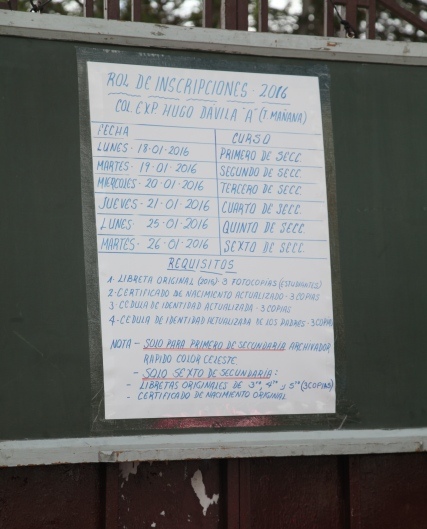 ROL DE INSCRIPCIONES - 2016
COL. EXP. HUGO DAVILA "A" (T. MAÑANA)
FECHA CURSO
LUNES - 18-01-2016 PRIMERO DE SECC.
MARTES - 19-01-2016 SEGUNDO DE SECC.
MIERCOLES - 20-01-2016 TERCERO DE SECC.
JUEVES - 21-01-2016 CUARTO DE SECC.
LUNES - 25-01-2016 QUINTO DE SECC.
MARTES - 26-01-2016 SEXTO DE SECC.
REQUISITOS
1- LIBRETA ORIGINAL (2016) - 3 FOTOCOPIAS (ESTUDIANTES)
2- CERTIFICADO DE NACIMIENTO ACTUALIZADO - 3 COPIAS
3- CEDULA DE IDENTIDAD ACTUALIZADA - 3 COPIAS
4- CEDULA DE IDENTIDAD ACTUALIZADA DE LOS PADRES - 3 COPIAS
NOTA - SOLO PARA PRIMERO DE SECUNDARIA ARCHIVADOR
RAPIDO COLOR CELESTE
- SOLO SEXTO DE SECUNDARIA:
- LIBRETAS ORIGINALES DE 3ro, 4to y 5to (3 COPIAS)
- CERTIFICADO DE NACIMIENTO ORIGINAL